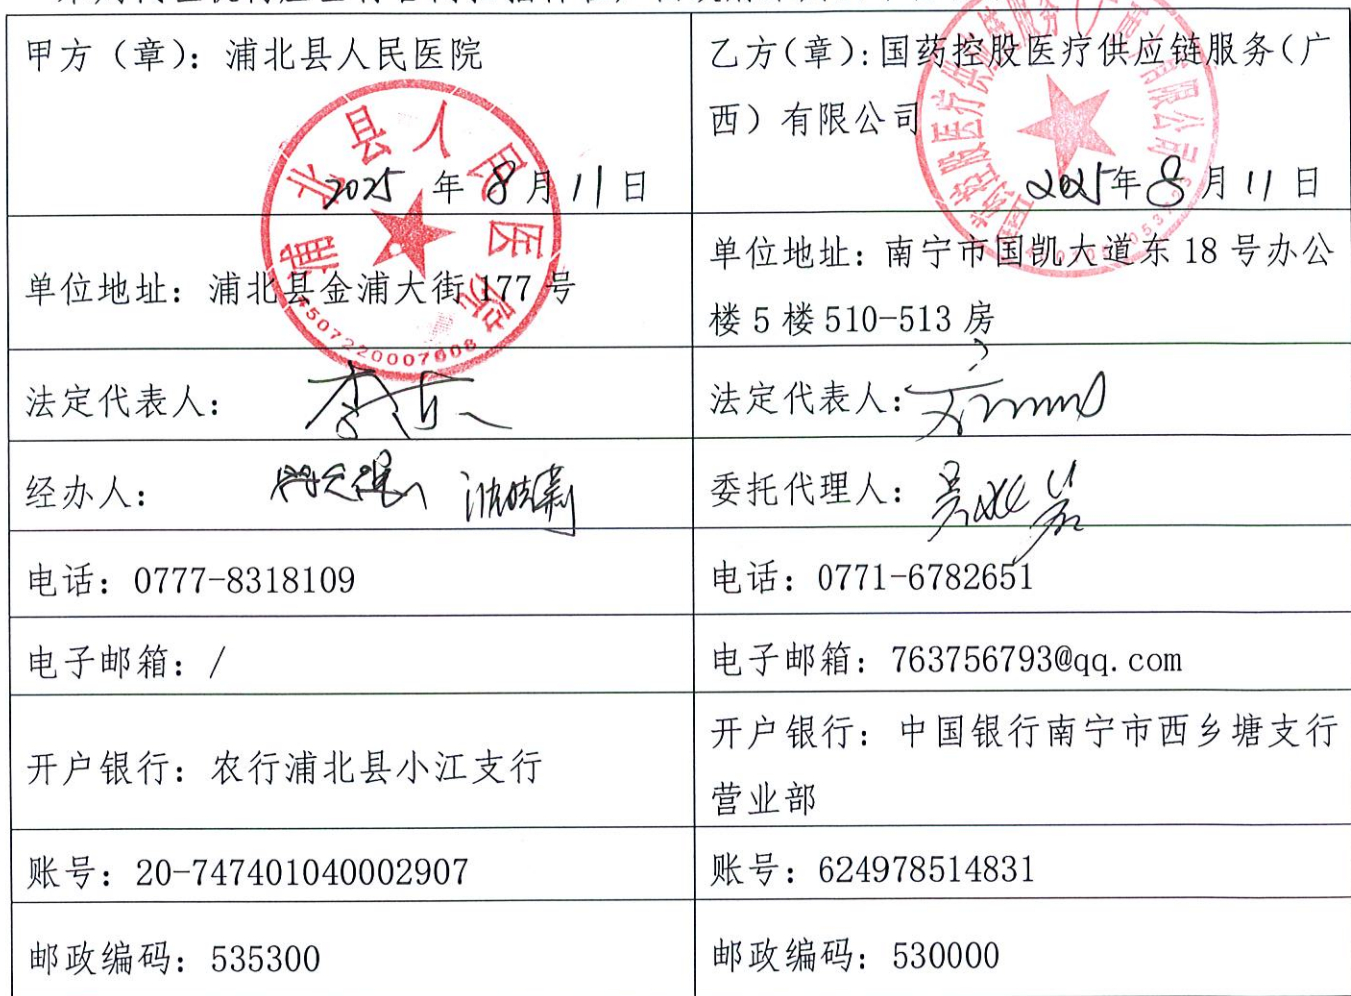 甲方（章）：浦北县人民医院
2025 年 8 月 11 日
乙方（章）：国药控股医疗供应链服务（广
西）有限公司
2025年 8 月 11 日
单位地址：浦北县金浦大街 177 号
单位地址：南宁市国凯大道东 18 号办公
楼 5 楼 510-513 房
法定代表人：
法定代表人：
经办人：
委托代理人：
电话：0777-8318109
电话：0771-6782651
电子邮箱：/
电子邮箱：763756793@qq.com
开户银行：农行浦北县小江支行
开户银行：中国银行南宁市西乡塘支行
营业部
账号：20-747401040002907
账号：624978514831
邮政编码：535300
邮政编码：530000
浦北县人民医院
4507220007608